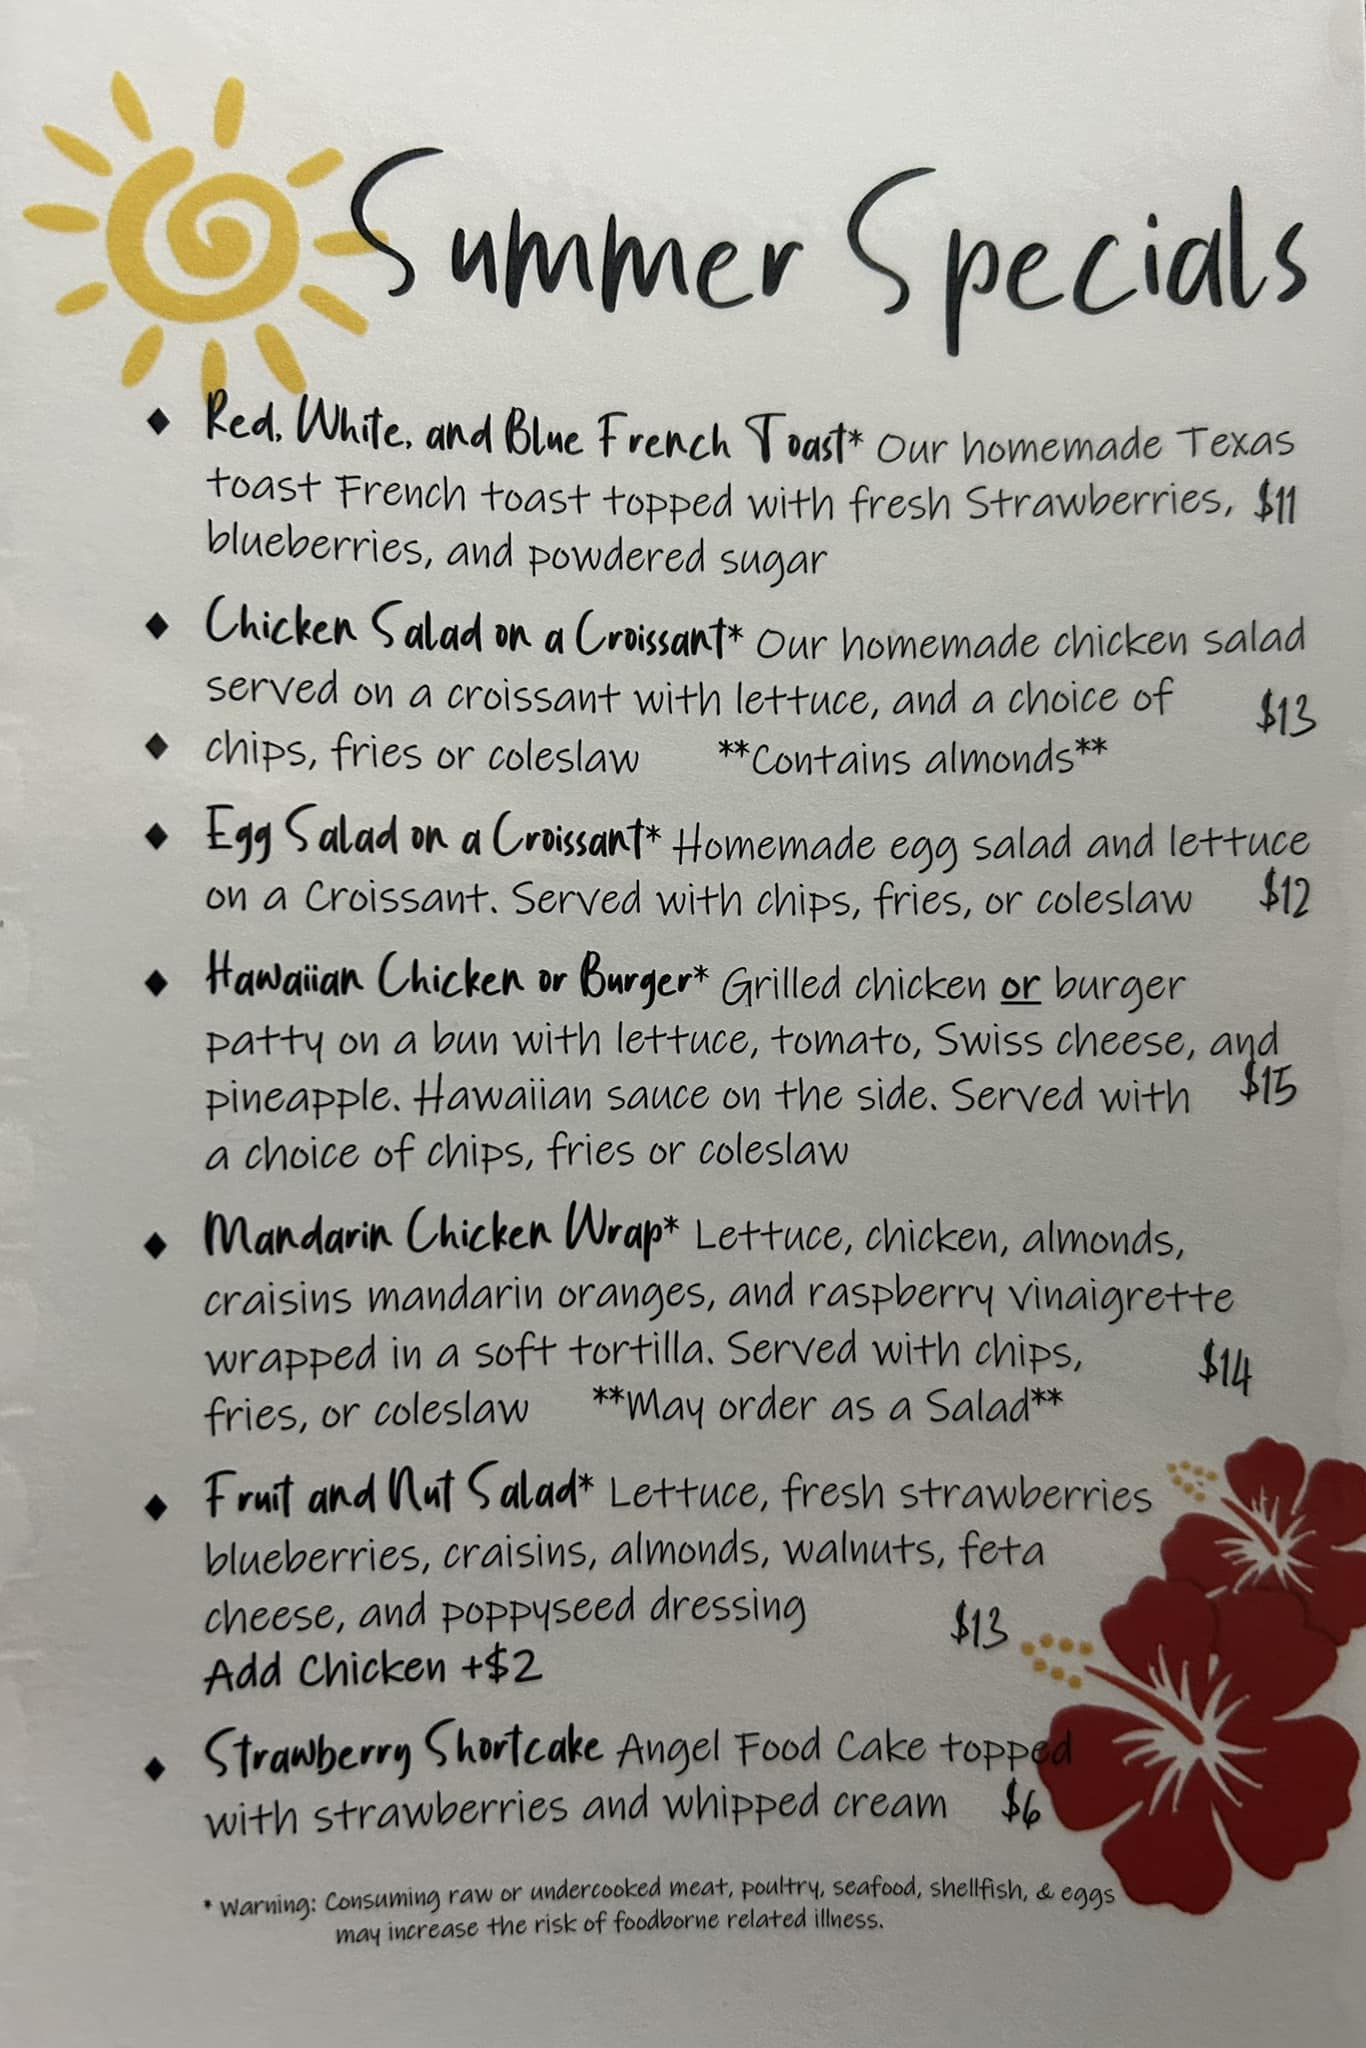 Summer Specials
◆ Red, White, and Blue French Toast* Our homemade Texas
toast French toast topped with fresh Strawberries, $11
blueberries, and powdered sugar
◆ Chicken Salad on a Croissant* Our homemade chicken salad
served on a croissant with lettuce, and a choice of $13
◆ chips, fries or coleslaw **Contains almonds**
◆ Egg Salad on a Croissant* Homemade egg salad and lettuce
on a Croissant. Served with chips, fries, or coleslaw $12
◆ Hawaiian Chicken or Burger* Grilled chicken or burger
patty on a bun with lettuce, tomato, Swiss cheese, and
pineapple. Hawaiian sauce on the side. Served with $15
a choice of chips, fries or coleslaw
◆ Mandarin Chicken Wrap* Lettuce, chicken, almonds,
craisins mandarin oranges, and raspberry vinaigrette
wrapped in a soft tortilla. Served with chips, $14
fries, or coleslaw **May order as a Salad**
◆ Fruit and Nut Salad* Lettuce, fresh strawberries
blueberries, craisins, almonds, walnuts, feta
cheese, and poppyseed dressing $13
Add Chicken +$2
◆ Strawberry Shortcake Angel Food Cake topped
with strawberries and whipped cream $6
* Warning: Consuming raw or undercooked meat, poultry, seafood, shellfish, & eggs
may increase the risk of foodborne related illness.